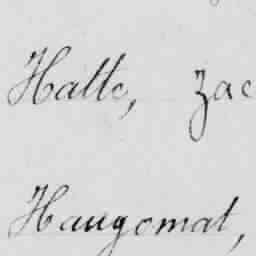 Halte, zac
Haugomat,